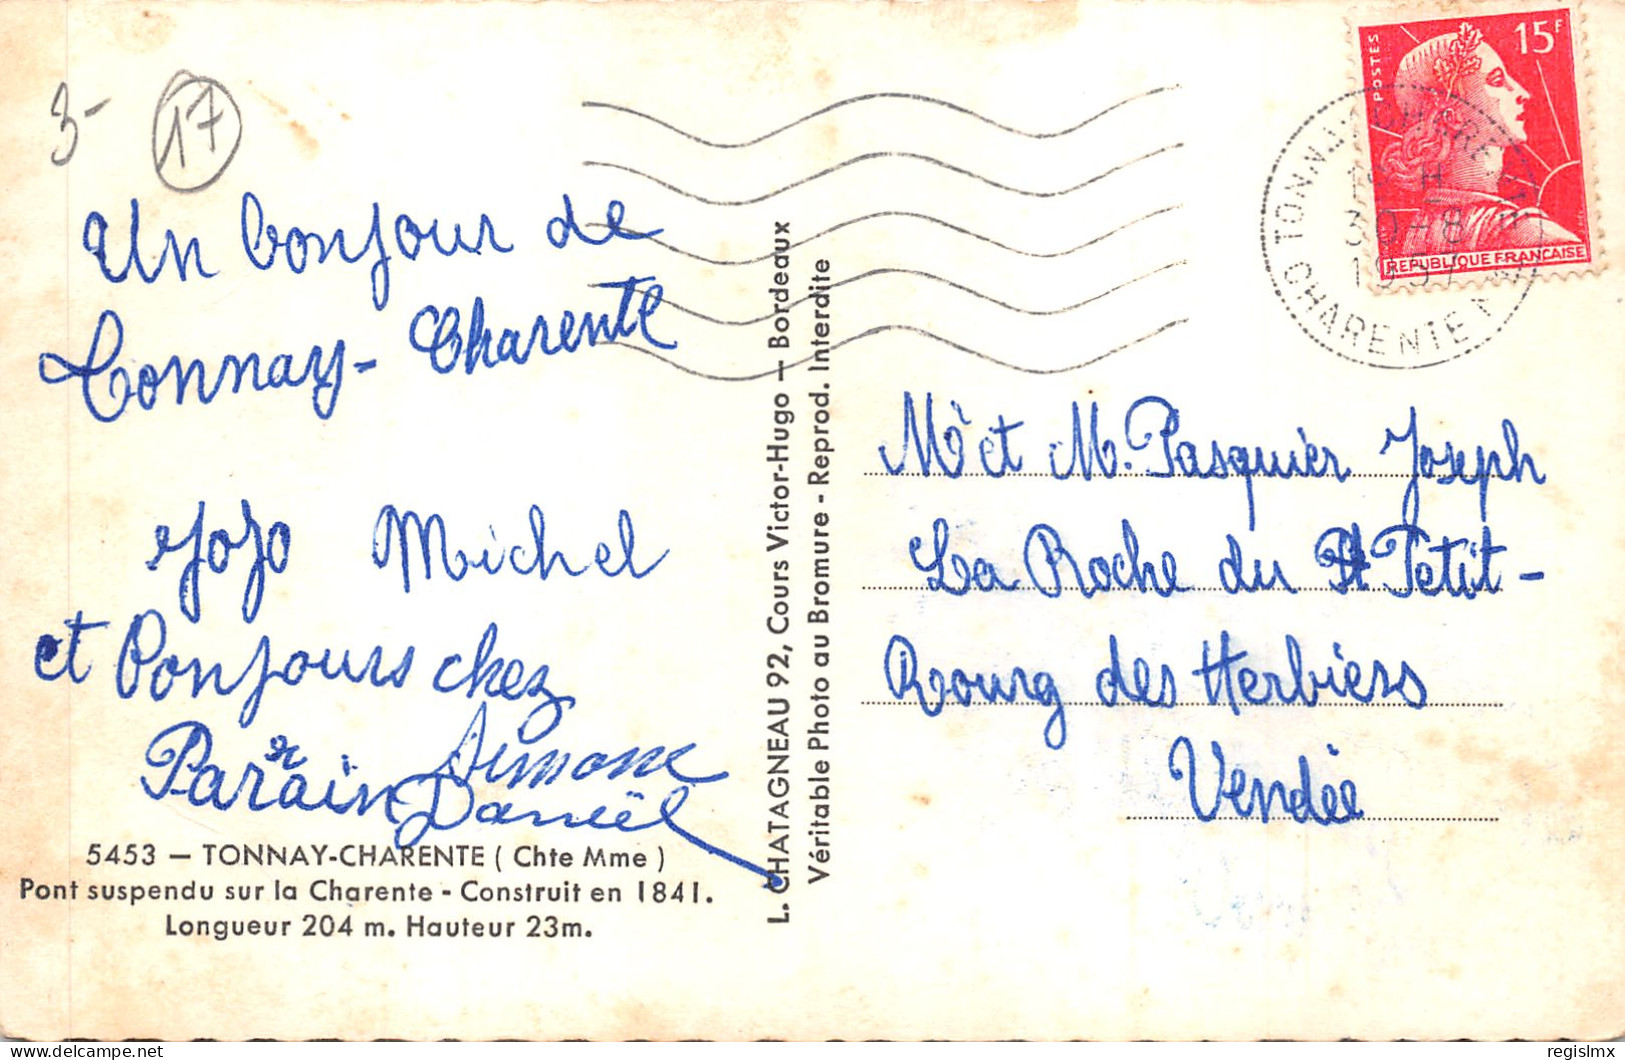 3-
17
Un bonjour de
Tonnay-Charente
Jojo Michel
et Bonjours chez
Parrain Simone
Daniel
5453 – TONNAY-CHARENTE ( Chte Mme )
Pont suspendu sur la Charente - Construit en 1841.
Longueur 204 m. Hauteur 23m.
L. CHATAGNEAU 92, Cours Victor-Hugo – Bordeaux
Véritable Photo au Bromure - Reprod. Interdite
POSTES
15F
REPUBLIQUE FRANÇAISE
TONNAY CHARENTE
H
30-8
1957
CHARENTE
Mr et M. Pasquier Joseph
La Roche du Petit-
Bourg des Herbiers
Vendée
regislmx
delcampe.net